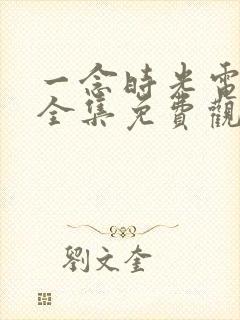 一念時光電
全集免費觀
劉文奎